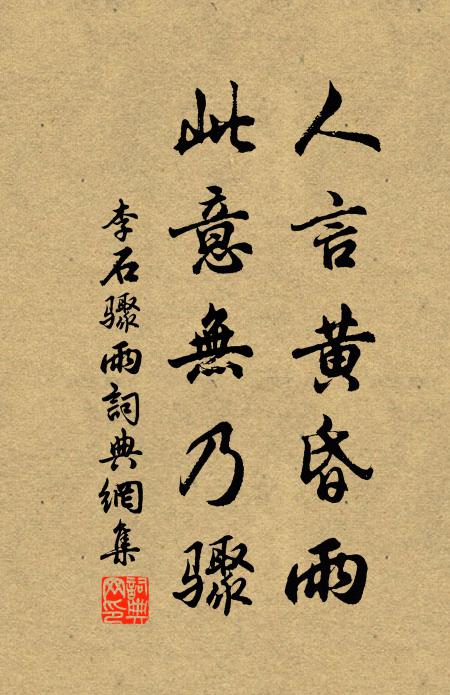 人言黃昏雨
此意無乃驟
李石驟雨詞典網集
詞典网印